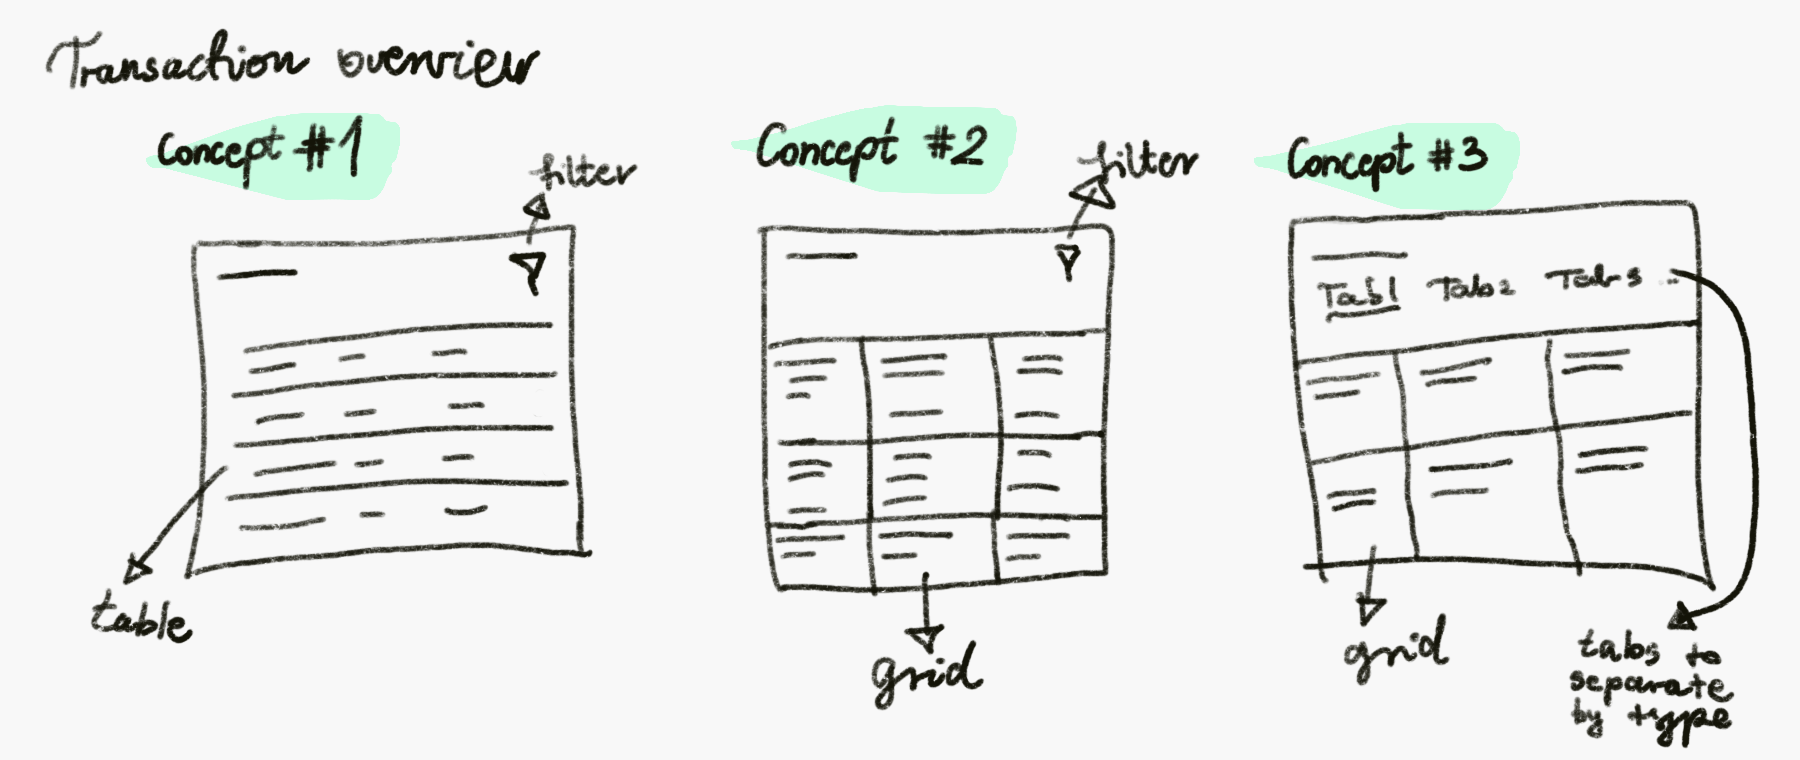 Transaction overview
Concept #1
filter
table
Concept #2
filter
grid
Concept #3
Tab1 Tab2 Tab3 ..
grid
tabs to
separate
by type